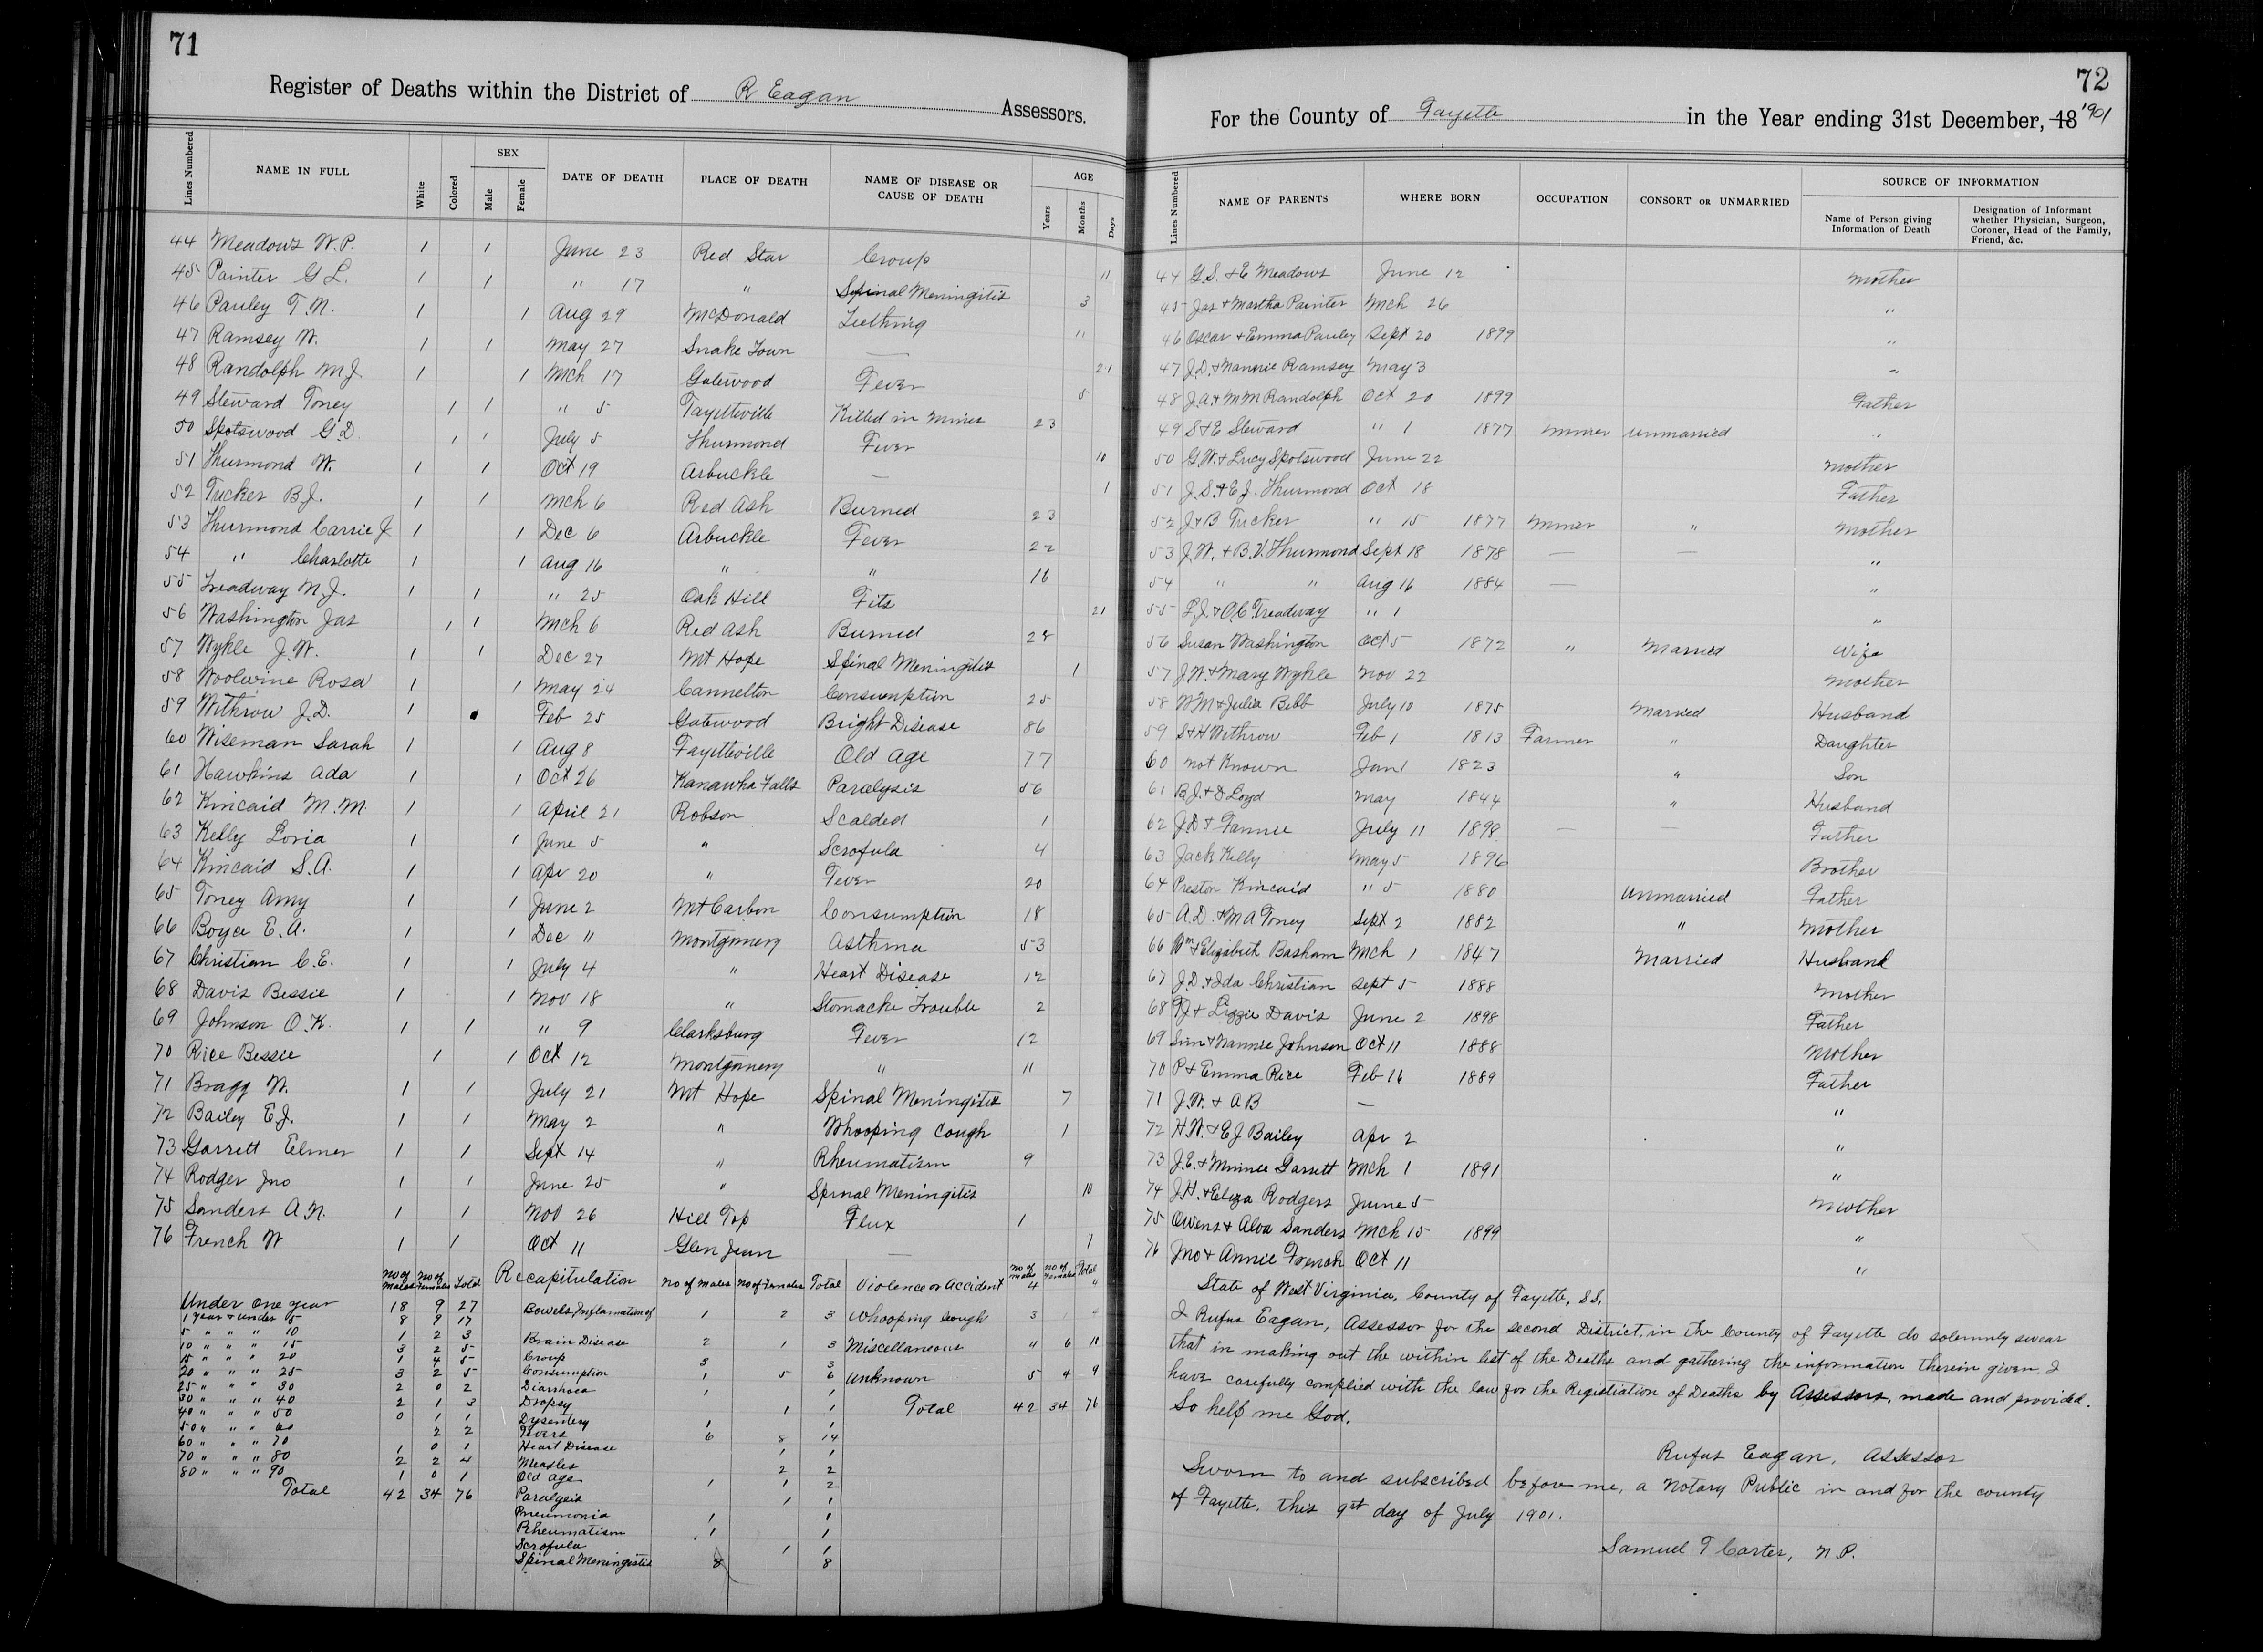 71
Register of Deaths within the District of R Eagan Assessors.
Lines Numbered | NAME IN FULL | White | Colored | SEX Male | Female | DATE OF DEATH | PLACE OF DEATH | NAME OF DISEASE OR CAUSE OF DEATH | AGE Years | Months | Days
44 Meadows W.P. 1 1 June 23 Red Star Croup 11
45 Painter G L. 1 1 " 17 " Spinal Meningitis 3
46 Pauley T. N. 1 1 Aug 29 McDonald Teething 11
47 Ramsey W. 1 1 May 27 Snake Town — 21
48 Randolph M J 1 1 Mch 17 Gatewood Fever 5
49 Steward Toney 1 1 " 5 Fayetteville Killed in Mines 23
50 Spotswood G D. 1 1 July 5 Thurmond Fever 10
51 Thurmond W. 1 1 Oct 19 Arbuckle — 1
52 Tucker B J. 1 1 Mch 6 Red Ash Burned 23
53 Thurmond Carrie J 1 1 Dec 6 Arbuckle Fever 22
54 " Charlotte 1 1 Aug 16 " " 16
55 Treadway N J. 1 1 " 25 Oak Hill Fits 21
56 Washington Jas 1 1 Mch 6 Red Ash Burned 28
57 Wykle J. W. 1 1 Dec 27 Mt Hope Spinal Meningitis 1
58 Woolwine Rosa 1 1 May 24 Cannelton Consumption 25
59 Withrow J. D. 1 1 Feb 25 Gatewood Bright Disease 86
60 Wiseman Sarah 1 1 Aug 8 Fayetteville Old Age 77
61 Hawkins Ada 1 1 Oct 26 Kanawha Falls Paralysis 56
62 Kincaid M. M. 1 1 April 21 Robson Scalded 1
63 Kelly Loria 1 1 June 5 " Scrofula 4
64 Kincaid S. A. 1 1 Apr 20 " Fever 20
65 Toney Amy 1 1 June 2 Mt Carbon Consumption 18
66 Boyce E. A. 1 1 Dec 11 Montgomery Asthma 53
67 Christian C. E. 1 1 July 4 " Heart Disease 12
68 Davis Bessie 1 1 Nov 18 " Stomacke Trouble 2
69 Johnson O. K. 1 1 " 9 Clarksburg Fever 12
70 Rice Bessie 1 1 Oct 12 Montgomery " 11
71 Bragg W. 1 1 July 21 Mt Hope Spinal Meningitis 7
72 Bailey E J. 1 1 May 2 " Whooping Cough 1
73 Garrett Elmer 1 1 Sept 14 " Rheumatism 9
74 Rodger Jno 1 1 June 25 " Spinal Meningitis 10
75 Sanders A. N. 1 1 Nov 26 Hill Top Flux 1
76 French W 1 1 Oct 11 Glen Jean — 1
No of Males | No of Females | Total | Recapitulation | No of Males | No of Females | Total | Violence or Accident | No of Males 4 | No of Females | Total "
Under one year 18 9 27 Bowels, Inflamation of 1 2 3 Whooping Cough 3 1 4
1 year & under 5 8 9 17
5 " " " 10 1 2 3 Brain Disease 2 1 3 Miscellaneous " 6 11
10 " " " 15 3 2 5 Croup 3 3
15 " " " 20 1 4 5 Consumption 1 5 6 Unknown 5 4 9
20 " " " 25 3 2 5 Diarrhoea 1 1
25 " " " 30 2 0 2 Dropsy 1 1 Total 42 34 76
30 " " " 40 2 1 3 Dysentery 1 1
40 " " " 50 0 1 1 Fevers 6 8 14
50 " " " 60 2 2 Heart Disease 1 1
60 " " " 70 1 0 1 Measles 2 2
70 " " " 80 2 2 4 Old Age 1 1 2
80 " " " 90 1 0 1 Paralysis 1 1
Total 42 34 76
Pneumonia 1 1
Rheumatism 1 1
Scrofula 1 1
Spinal Meningitis 8 8
72
For the County of Fayette in the Year ending 31st December, 18 1901
Lines Numbered | NAME OF PARENTS | WHERE BORN | OCCUPATION | CONSORT OR UNMARRIED | SOURCE OF INFORMATION
Name of Person giving Information of Death | Designation of Informant whether Physician, Surgeon, Coroner, Head of the Family, Friend, &c.
44 G. S. & E Meadows June 12 Mother
45 Jas & Martha Painter Mch 26 "
46 Oscar & Emma Pauley Sept 20 1899 "
47 J. D. & Nannie Ramsey May 3 "
48 J. A. & M M Randolph Oct 20 1899 Father
49 S & E Steward " 1 1877 Miner Unmarried "
50 G. W. & Lucy Spotswood June 22 Mother
51 J. S. & E J. Thurmond Oct 18 Father
52 J & B Tucker " 15 1877 Miner " Mother
53 J. W. & B. V. Thurmond Sept 18 1878 — — "
54 " " Aug 16 1884 — "
55 L. J. & O. C. Treadway " 1 "
56 Susan Washington Oct 5 1872 " Married Wife
57 J. W. & Mary Wykle Nov 22 Mother
58 W M & Julia Bibb July 10 1875 Married Husband
59 S & H Withrow Feb 1 1813 Farmer " Daughter
60 not Known Jan 1 1823 " Son
61 B. J. & D Loyd May 1844 " Husband
62 J D & Fannie July 11 1898 — — Father
63 Jack Kelly May 5 1896 Brother
64 Preston Kincaid " 5 1880 Unmarried Father
65 A. D. & M A Toney Sept 2 1882 " Mother
66 Wm & Elizabeth Basham Mch 1 1847 Married Husband
67 J. D. & Ida Christian Sept 5 1888 Mother
68 & Lizzie Davis June 2 1898 Father
69 Sim & Nannie Johnson Oct 11 1888 Mother
70 P & Emma Rice Feb 16 1889 Father
71 J. W. & A B — "
72 H. W. & E J Bailey Apr 2 "
73 J. E. & Minnie Garrett Mch 1 1891 "
74 J. H. & Eliza Rodgers June 5 Mother
75 Owens & Alva Sanders Mch 15 1899 "
76 Jno & Annie French Oct 11 "
State of West Virginia, County of Fayette, SS,
I Rufus Eagan, Assessor for the second District, in the County of Fayette do solemnly swear
that in making out the within list of the Deaths and gathering the information therein given. I
have carefully complied with the law for the Registration of Deaths by Assessors, made and provided.
So help me God.
Rufus Eagan, Assessor
Sworn to and subscribed before me, a Notary Public in and for the county
of Fayette. this 9st day of July 1901.
Samuel T Carter, N. P.